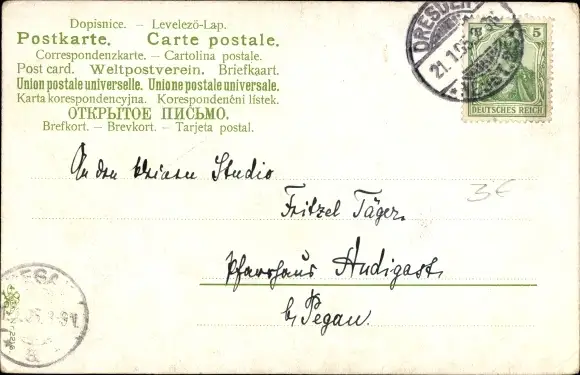 Dopisnice. – Levelező-Lap.
Postkarte. Carte postale.
Correspondenzkarte. – Cartolina postale.
Post card. Weltpostverein. Briefkaart.
Union postale universelle. Unione postale universale.
Karta korespondencyjna. Korespondenční lístek.
ОТКРЫТОЕ ПИСЬМО.
Brefkort. – Brevkort. – Tarjeta postal.
DRESDEN
21.1.05
5
DEUTSCHES REICH
An den Studio
Fritzel Täger.
3€
Pfarrhaus Audigast
b/ Pegau.